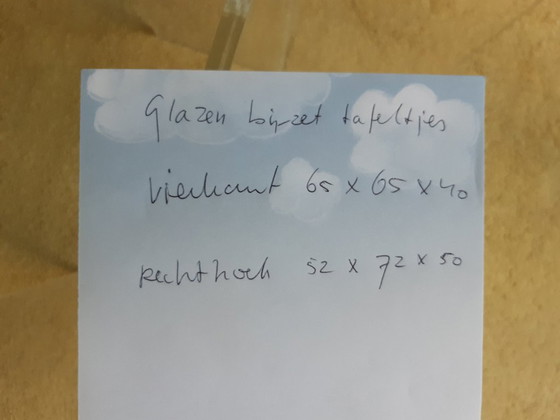 Glazen bijzet tafeltjes
Vierkant 65 x 65 x 40
Rechthoek 52 x 72 x 50